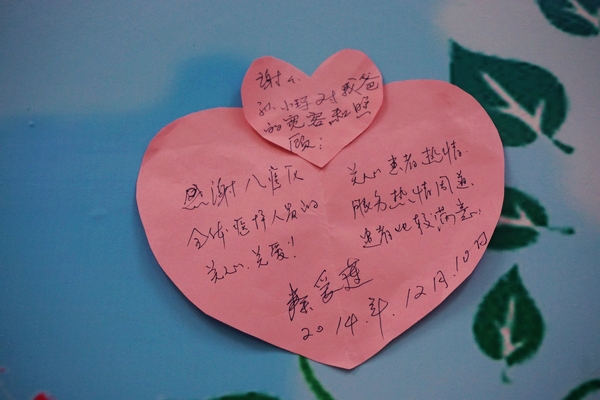 谢谢
孙小玲对我爸
的宽容和照
顾！
感谢八病区
全体医护人员的
关心、关爱！
关心患者热情.
服务热情周道.
患者比较满意.
2014年.12月.10日